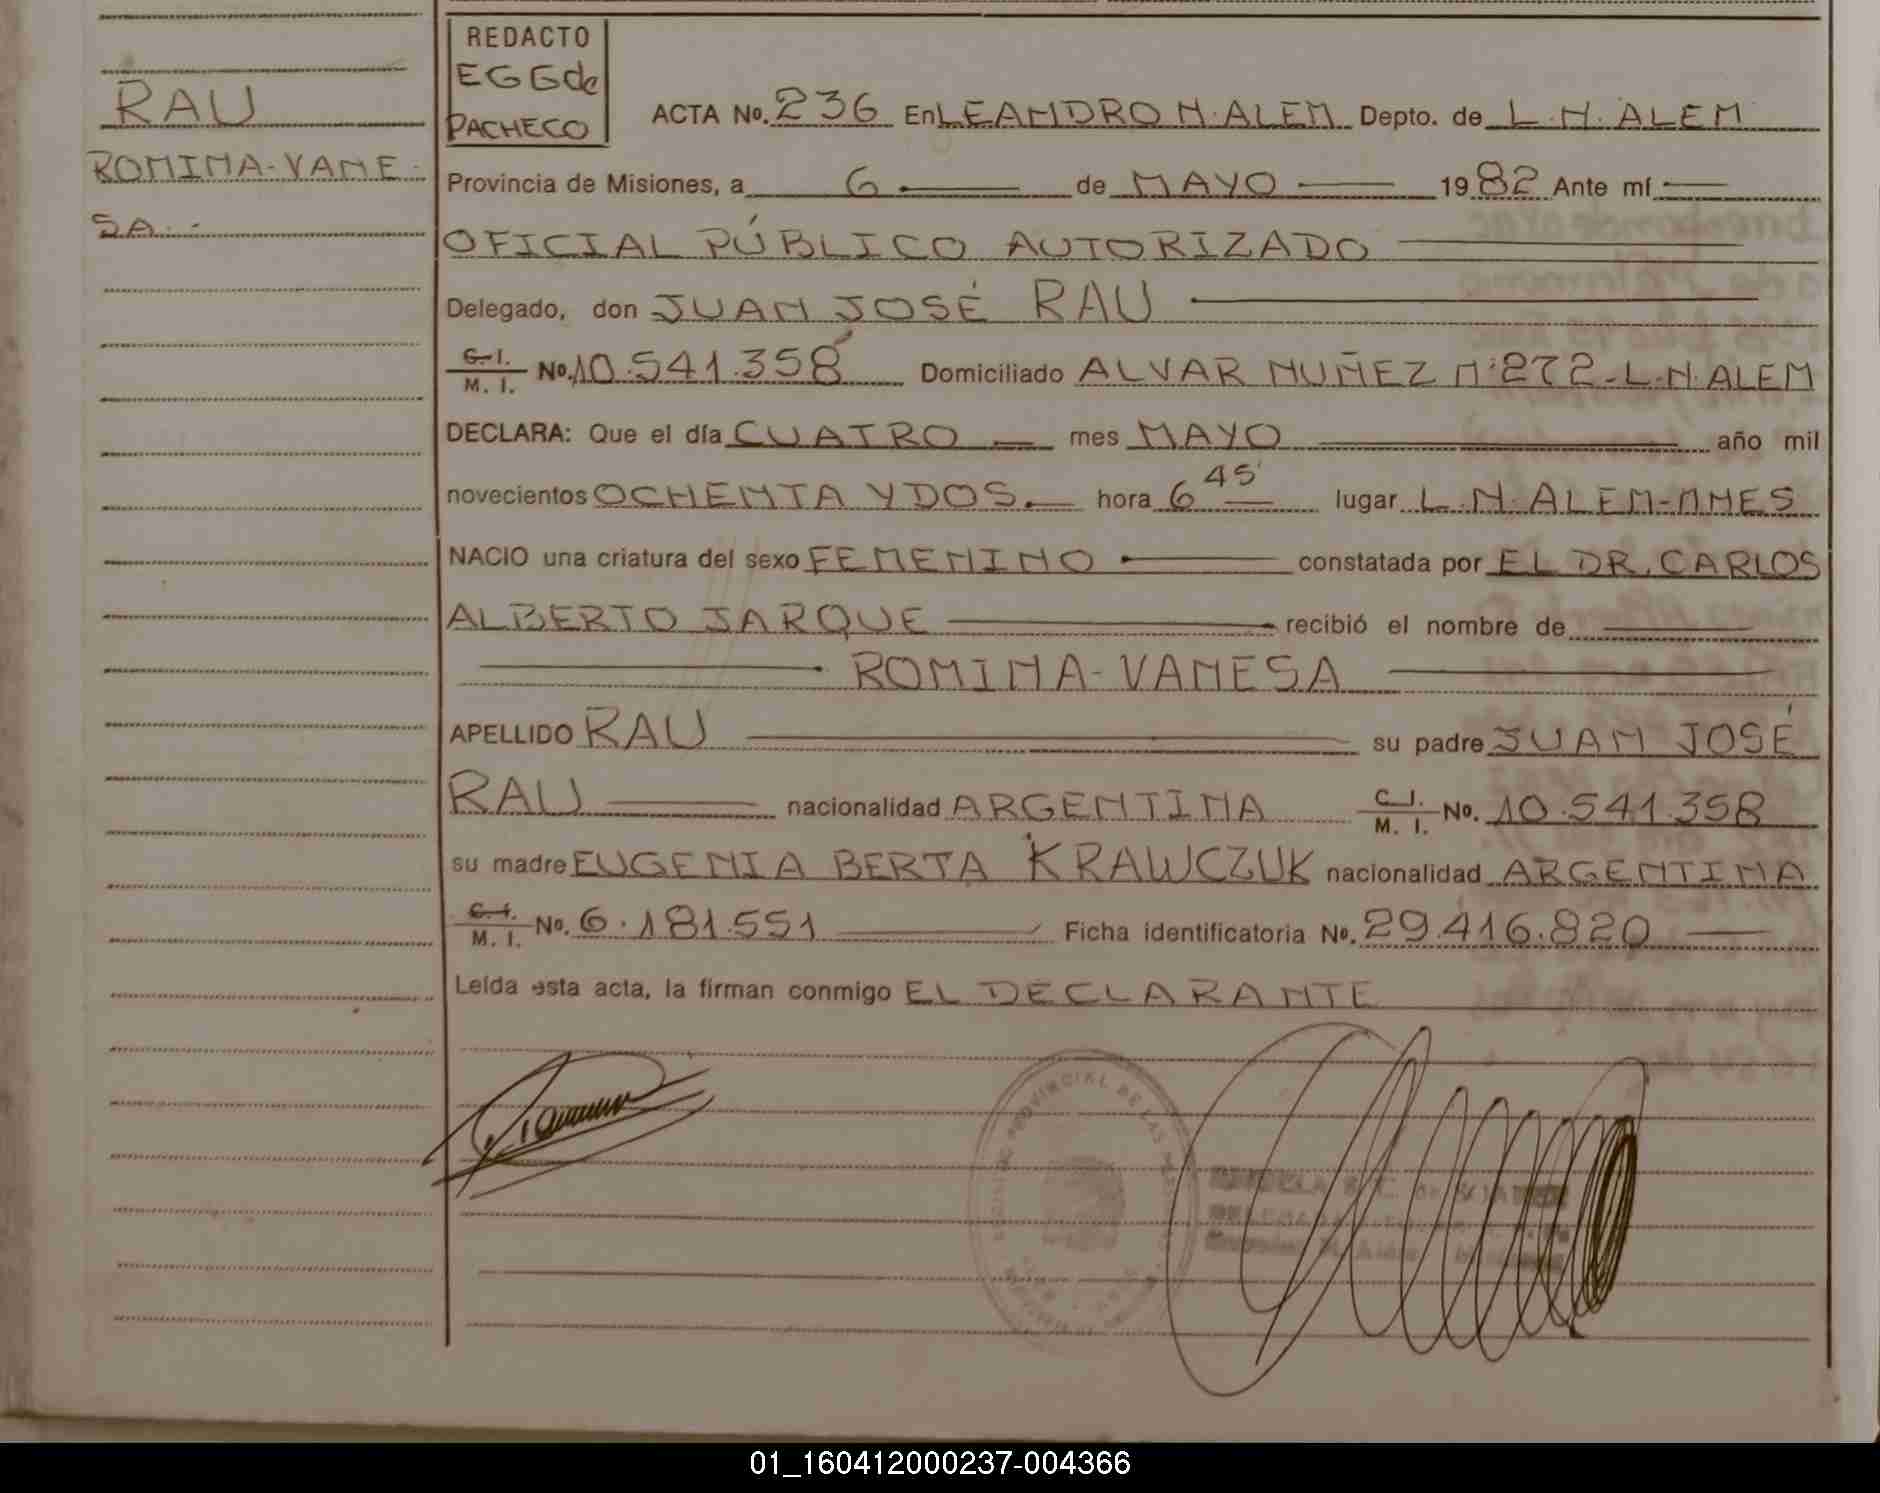 RAU
ROMINA-VANE-
SA.-
REDACTO
EGGde
PACHECO
ACTA No. 236 En LEANDRO N. ALEM Depto. de L.N. ALEM
Provincia de Misiones, a 6 de MAYO 1982 Ante mí
OFICIAL PÚBLICO AUTORIZADO
Delegado, don JUAN JOSÉ RAU
C.I. M.I. No. 10.541.358 Domiciliado ALVAR NUÑEZ Nº 272-L.N.ALEM
DECLARA: Que el día CUATRO mes MAYO año mil
novecientos OCHENTA Y DOS. hora 6 45' lugar L.N. ALEM-MNES
NACIO una criatura del sexo FEMENINO constatada por EL DR. CARLOS
ALBERTO JARQUE recibió el nombre de
ROMINA-VANESA
APELLIDO RAU su padre JUAN JOSÉ
RAU nacionalidad ARGENTINA C.I. M.I. No. 10.541.358
su madre EUGENIA BERTA KRAWCZUK nacionalidad ARGENTINA
C.I. M.I. No. 6.181.551 Ficha identificatoria No. 29.416.820
Leída esta acta, la firman conmigo EL DECLARANTE
PROVINCIAL DE LAS
01_160412000237-004366